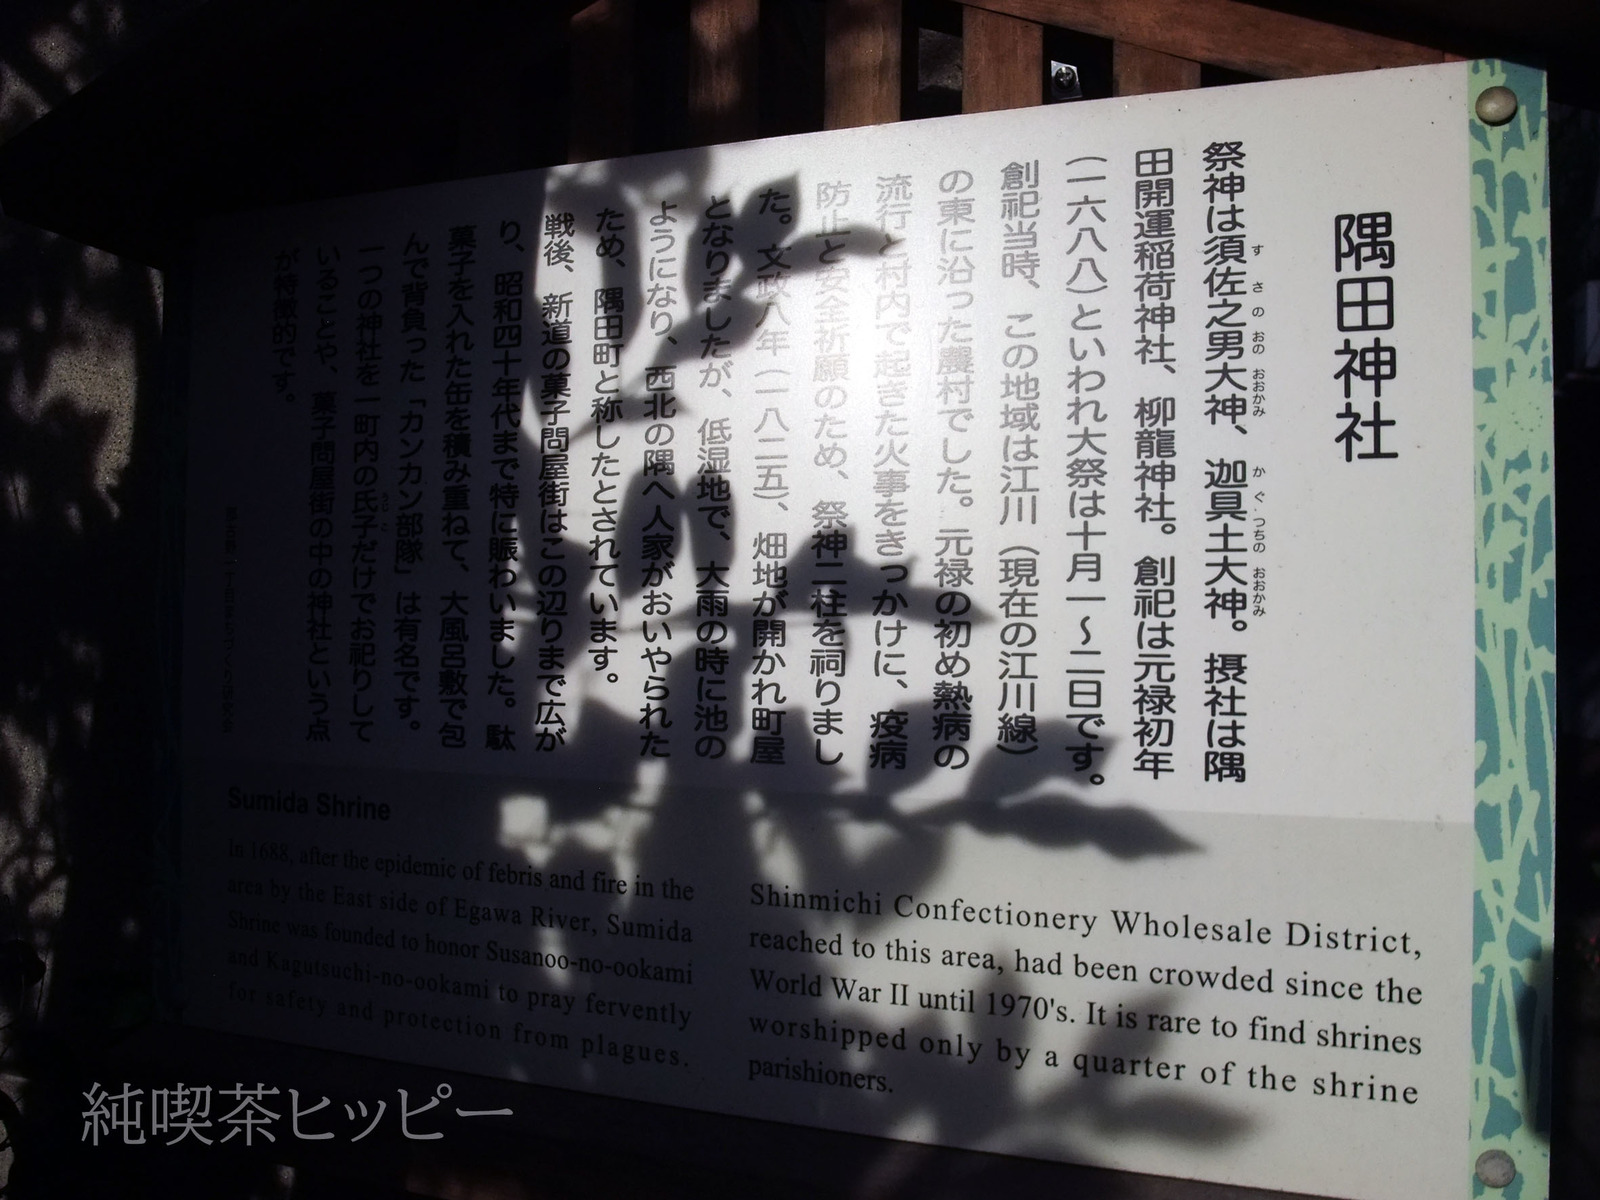 隅田神社
祭神は須佐之男大神、迦具土大神。摂社は隅
す さ の おの おおかみ
か ぐ つちの おおかみ
田開運稲荷神社、柳龍神社。創祀は元禄初年
(一六八八)といわれ大祭は十月一〜二日です。
創祀当時、この地域は江川(現在の江川線)
の東に沿った農村でした。元禄の初め熱病の
流行と村内で起きた火事をきっかけに、疫病
防止と安全祈願のため、祭神二柱を祠りまし
た。文政八年(一八二五)、畑地が開かれ町屋
となりましたが、低湿地で、大雨の時に池の
ようになり、西北の隅へ人家がおいやられた
ため、隅田町と称したとされています。
戦後、新道の菓子問屋街はこの辺りまで広が
り、昭和四十年代まで特に賑わいました。駄
菓子を入れた缶を積み重ねて、大風呂敷で包
んで背負った「カンカン部隊」は有名です。
一つの神社を一町内の氏子だけでお祀りして
うじこ
いることや、菓子問屋街の中の神社という点
が特徴的です。
Sumida Shrine
In 1688, after the epidemic of febris and fire in the
area by the East side of Egawa River, Sumida
Shrine was founded to honor Susanoo-no-ookami
and Kagutsuchi-no-ookami to pray fervently
for safety and protection from plagues.
Shinmichi Confectionery Wholesale District,
reached to this area, had been crowded since the
World War II until 1970's. It is rare to find shrines
worshipped only by a quarter of the shrine
parishioners.
純喫茶ヒッピー